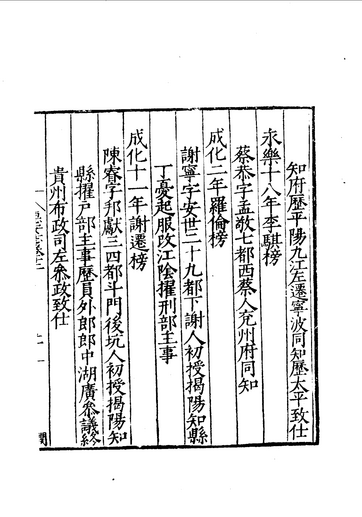 知府歷平陽九江左遷寧波同知歷太平致仕
永樂十八年李騏榜
蔡恭字孟敬七都西蔡人兖州府同知
成化二年羅倫榜
謝寧字安世二十九都下謝人初授揭陽知縣
丁憂起服改江陰擢刑部主事
成化十一年謝遷榜
陳睿字邦獻三四都斗門後坑人初授揭陽知
縣擢戶部主事歷員外郎郎中湖廣叅議終
貴州布政司左叅政致仕